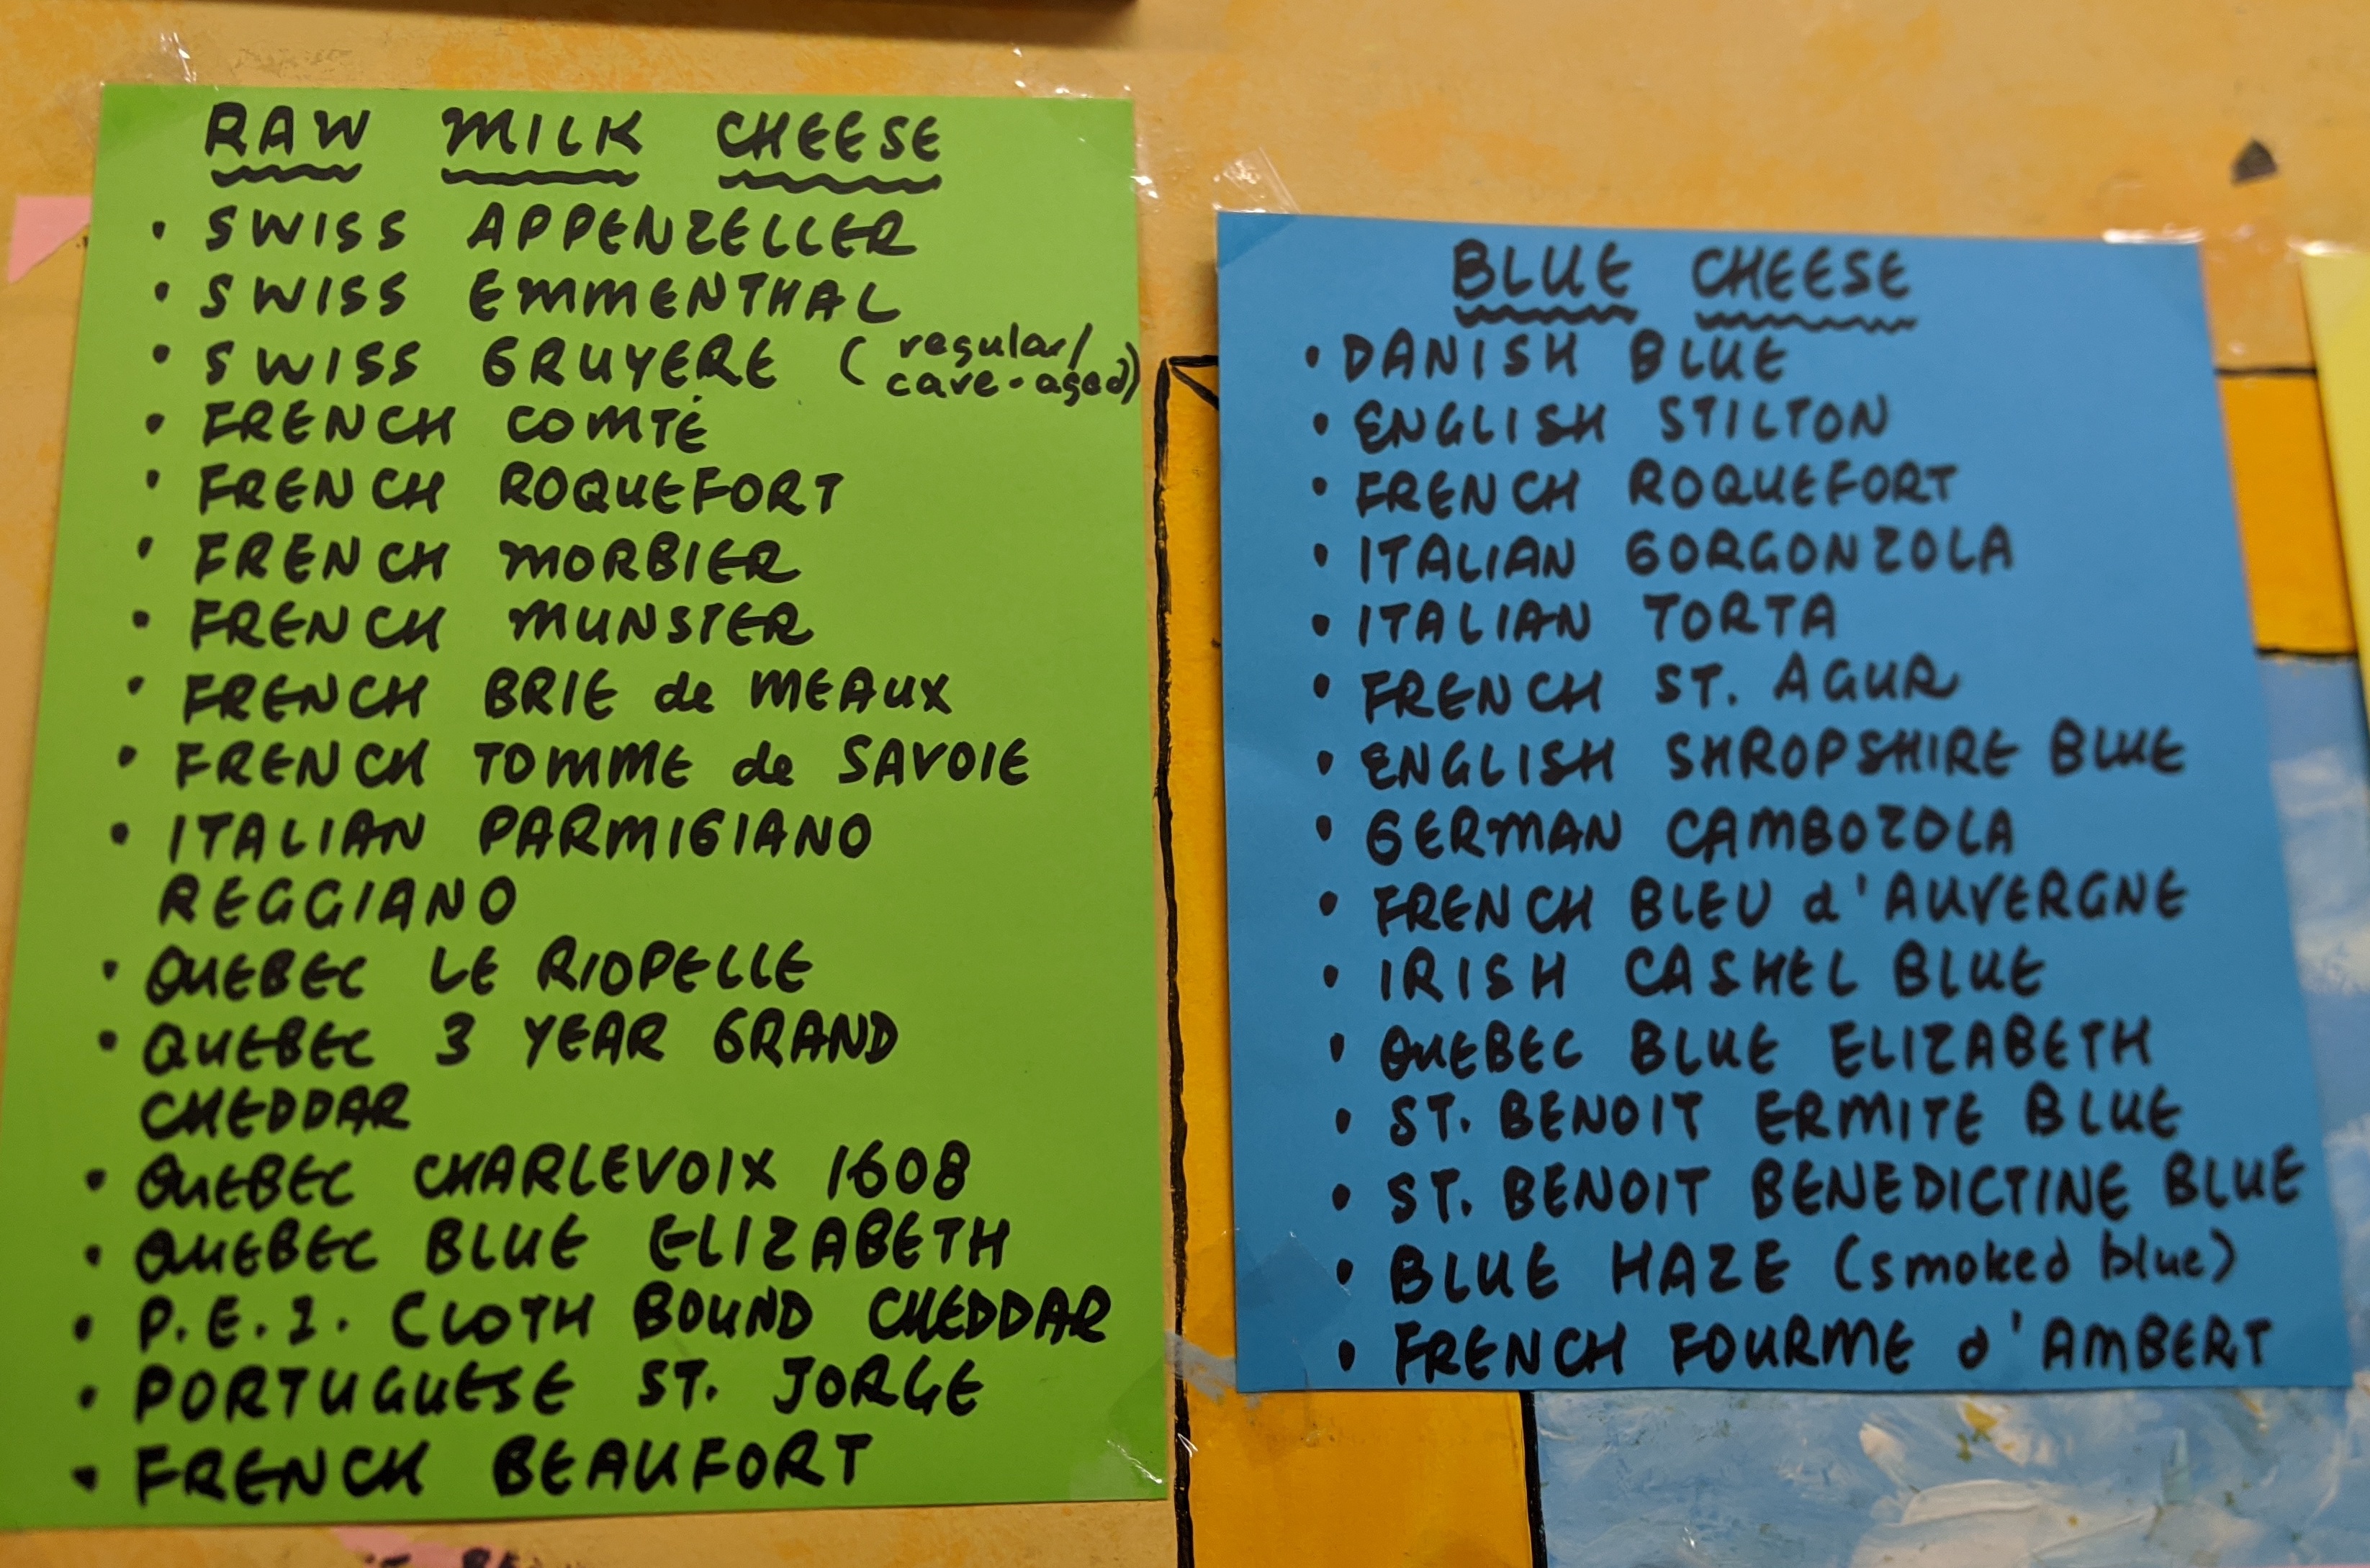 RAW MILK CHEESE
• SWISS APPENZELLER
• SWISS EMMENTHAL
• SWISS GRUYERE (regular/
cave-aged)
• FRENCH COMTÉ
• FRENCH ROQUEFORT
• FRENCH MORBIER
• FRENCH MUNSTER
• FRENCH BRIE de MEAUX
• FRENCH TOMME de SAVOIE
• ITALIAN PARMIGIANO
REGGIANO
• QUEBEC LE RIOPELLE
• QUEBEC 3 YEAR GRAND
CHEDDAR
• QUEBEC CHARLEVOIX 1608
• QUEBEC BLUE ELIZABETH
• P.E.I. CLOTH BOUND CHEDDAR
• PORTUGUESE ST. JORGE
• FRENCH BEAUFORT
BLUE CHEESE
• DANISH BLUE
• ENGLISH STILTON
• FRENCH ROQUEFORT
• ITALIAN GORGONZOLA
• ITALIAN TORTA
• FRENCH ST. AGUR
• ENGLISH SHROPSHIRE BLUE
• GERMAN CAMBOZOLA
• FRENCH BLEU d'AUVERGNE
• IRISH CASHEL BLUE
• QUEBEC BLUE ELIZABETH
• ST. BENOIT ERMITE BLUE
• ST. BENOIT BENEDICTINE BLUE
• BLUE HAZE (smoked blue)
• FRENCH FOURME d'AMBERT